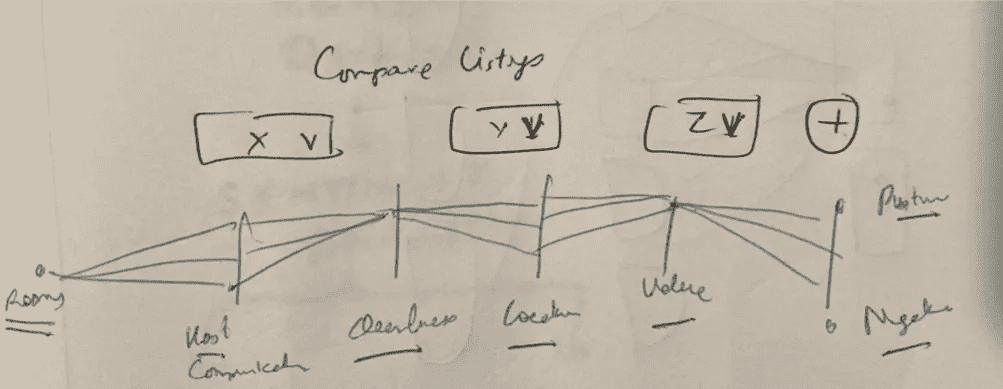 Compare Listings
X V
Y V
Z V
+
Positive
Rooms
Host
Communication
Cleanliness
Location
Value
Negative